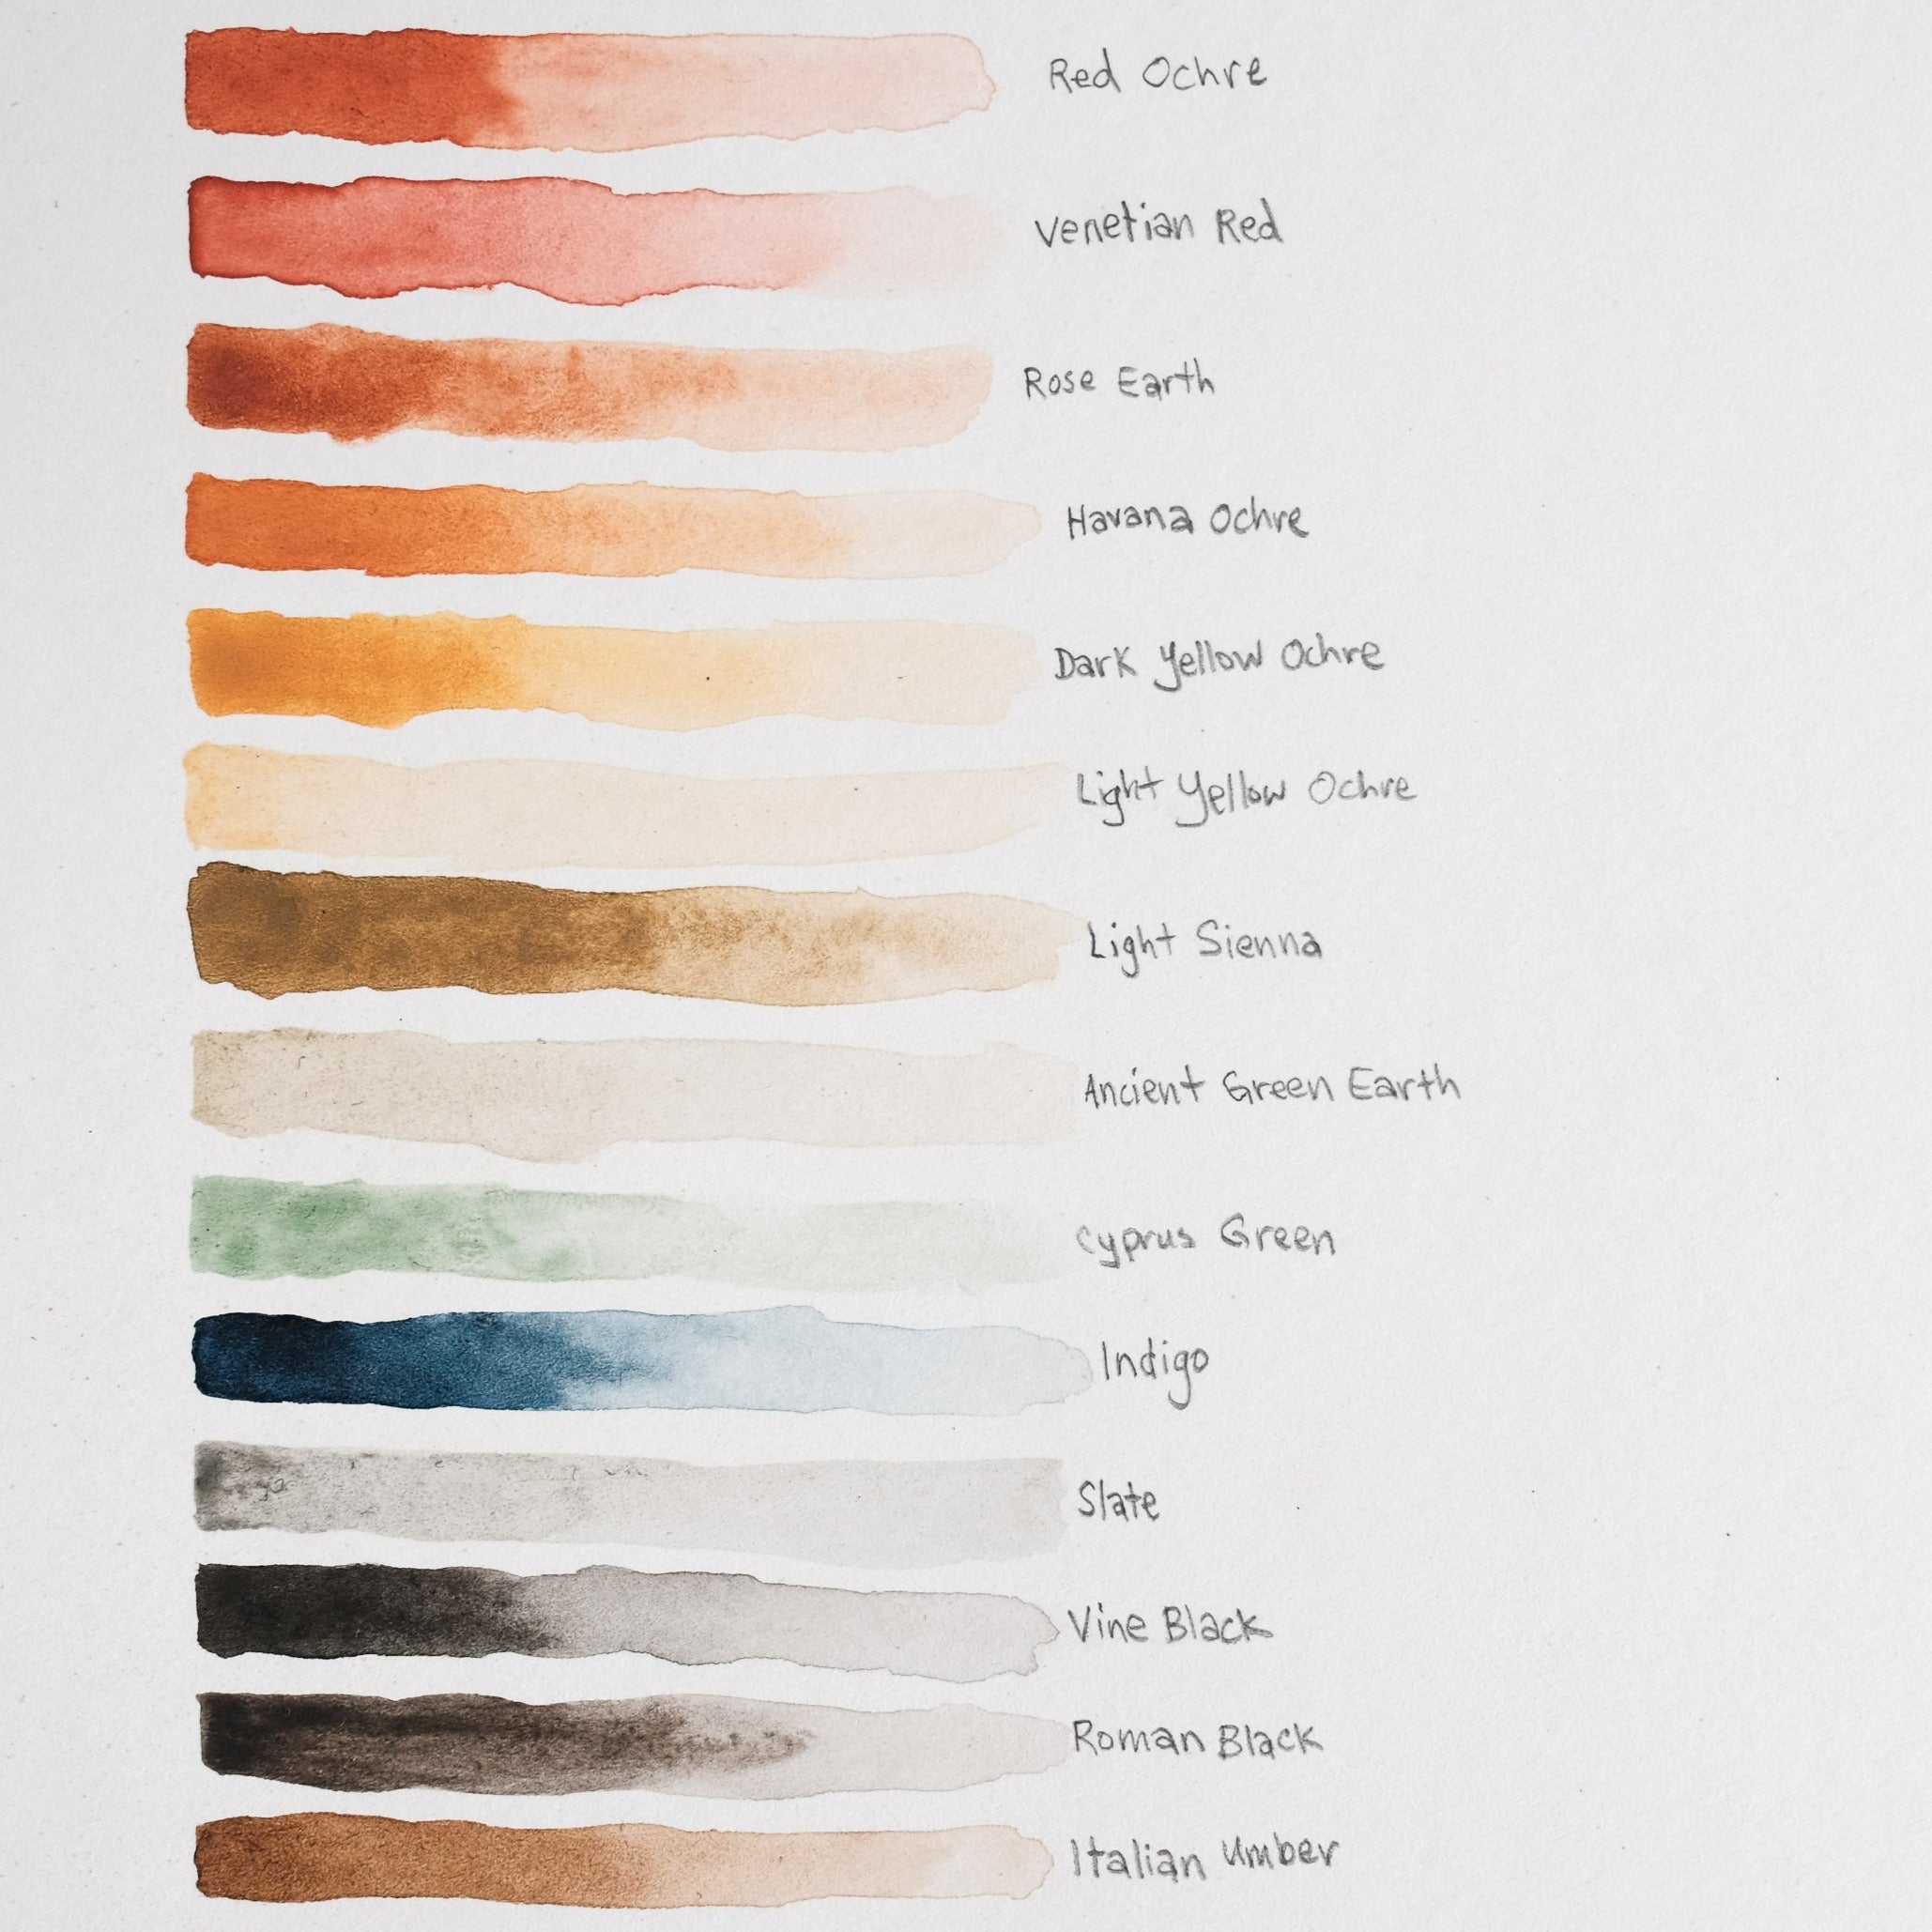 Red Ochre
Venetian Red
Rose Earth
Havana Ochre
Dark Yellow Ochre
Light Yellow Ochre
Light Sienna
Ancient Green Earth
Cyprus Green
Indigo
Slate
Vine Black
Roman Black
Italian Umber